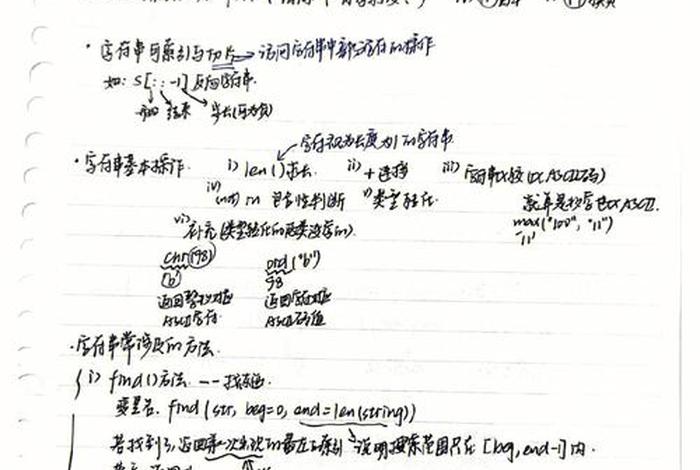 · 字符串的索引与切片 → 访问字符串中部分字符的操作
如: S[::-1] 反向字符串.
开始 结束 步长(可为负)
字符视为长度为1的字符串
· 字符串基本操作. i) len()求长. ii) + 连接 iii) 字符串比较(以ASCII码)
iv) (not) in 包含性判断 v) 类型转化. 就单是按字色以ASCII.
max("100", "11")
"11"
vi) 补充(类型转化的
chr(98) ord("b")
'b' 98
返回整数对应 返回字符对应
ASCII字符. ASCII码值
· 字符串常涉及的方法.
i) find()方法. --- 找东西.
变量名. find(str, beg=0, end=len(string))
若找到了,返回第一次出现的最左端索引 说明搜索范围只在 [beg, end-1]内.